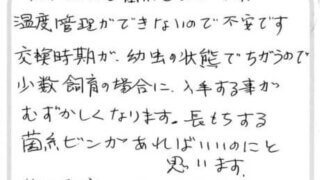 温度管理ができないので不安です
交換時期が、幼虫の状態でちがうので
少数飼育の場合に、入手する事が
むずかしくなります。長もちする
菌糸ビンがあればいいのにと
思います。